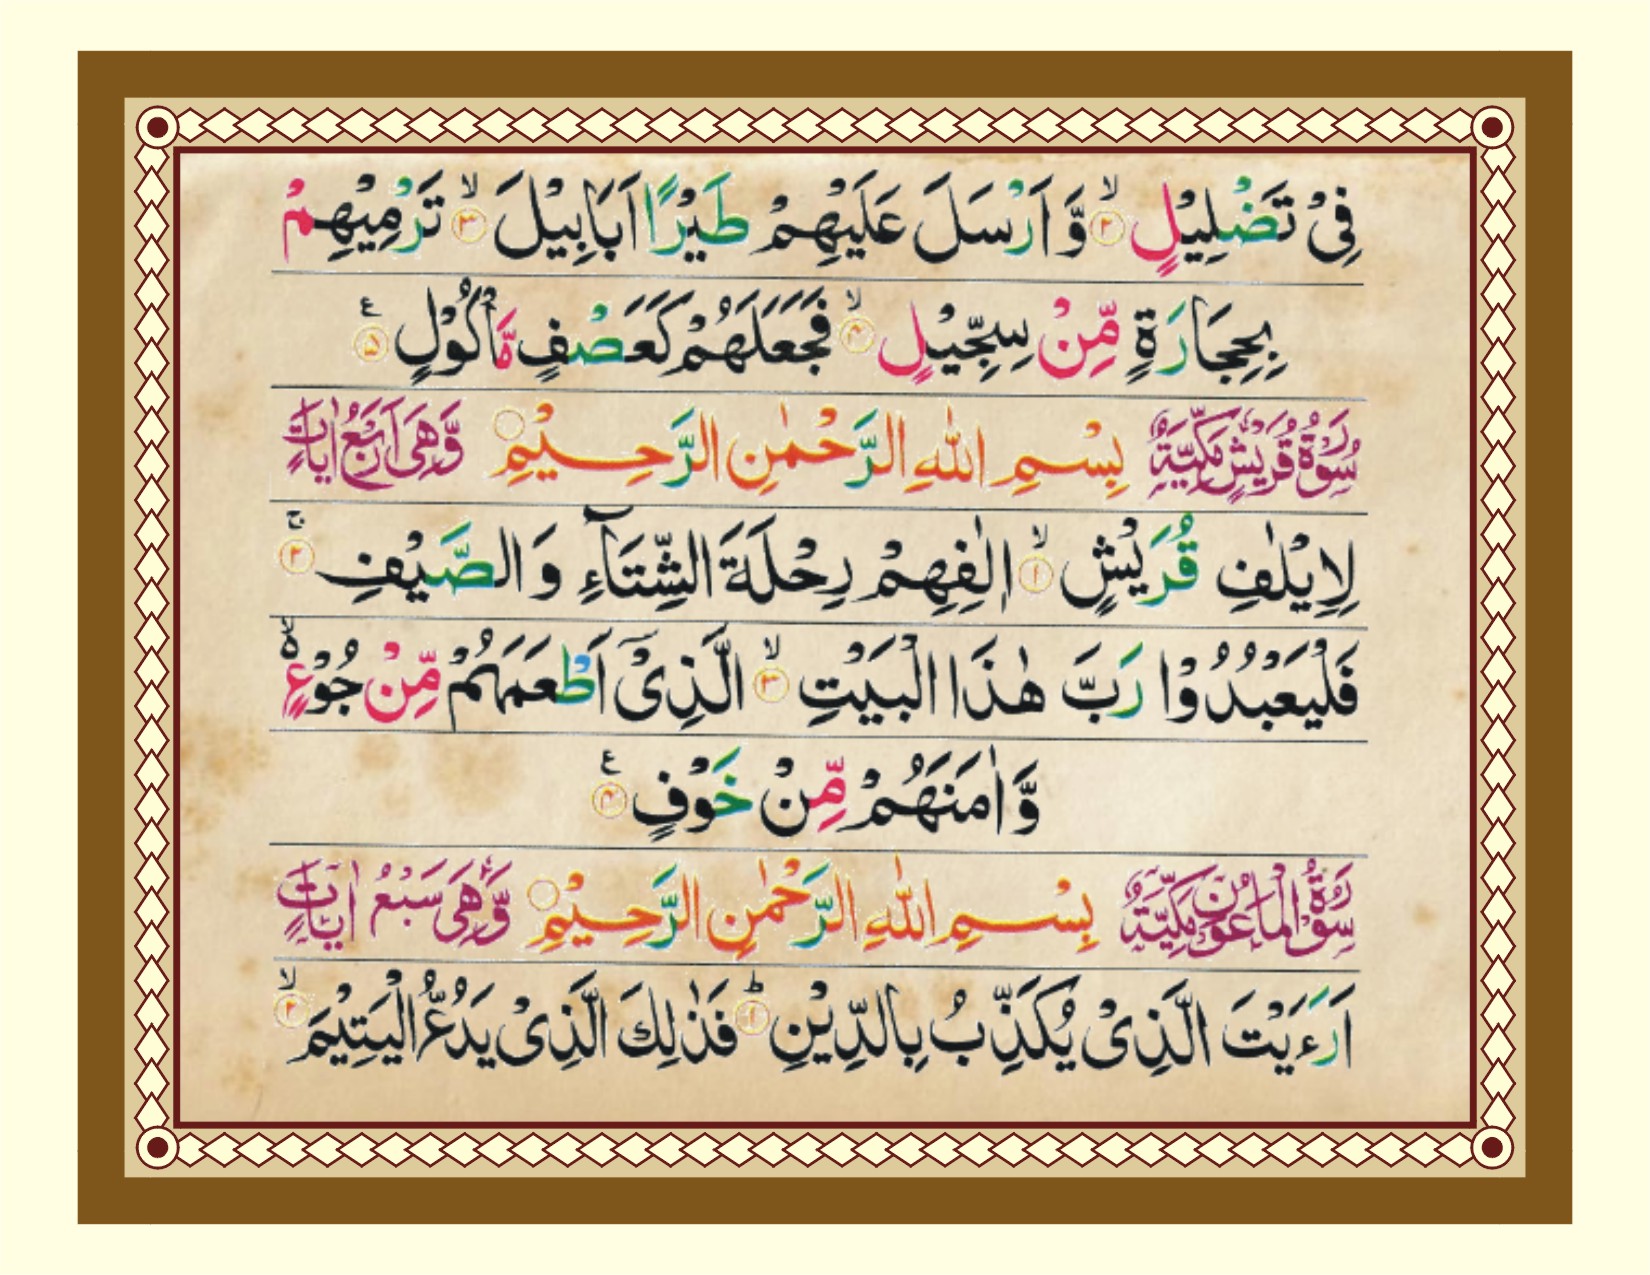 فِیْ تَضْلِیْلٍ ۙ﴿۲﴾ وَّ اَرْسَلَ عَلَیْهِمْ طَیْرًا اَبَابِیْلَ ۙ﴿۳﴾ تَرْمِیْهِمْ
بِحِجَارَةٍ مِّنْ سِجِّیْلٍ ۙ﴿۴﴾ فَجَعَلَهُمْ كَعَصْفٍ مَّاْكُوْلٍ ﴿۵﴾ ع
سُوْرَةُ قُرَیْشٍ مَّكِّیَّةٌ بِسْمِ اللّٰهِ الرَّحْمٰنِ الرَّحِیْمِ وَّهِیَ اَرْبَعُ اٰیَاتٍ
لِاِیْلٰفِ قُرَیْشٍ ۙ﴿۱﴾ اٖلٰفِهِمْ رِحْلَةَ الشِّتَآءِ وَ الصَّیْفِ ۚ﴿۲﴾
فَلْیَعْبُدُوْا رَبَّ هٰذَا الْبَیْتِ ۙ﴿۳﴾ الَّذِیْۤ اَطْعَمَهُمْ مِّنْ جُوْعٍ ۙ۬
وَّ اٰمَنَهُمْ مِّنْ خَوْفٍ ﴿۴﴾ ع
سُوْرَةُ الْمَاعُوْنِ مَكِّیَّةٌ بِسْمِ اللّٰهِ الرَّحْمٰنِ الرَّحِیْمِ وَّهِیَ سَبْعُ اٰیَاتٍ
اَرَءَیْتَ الَّذِیْ یُكَذِّبُ بِالدِّیْنِ ؕ﴿۱﴾ فَذٰلِكَ الَّذِیْ یَدُعُّ الْیَتِیْمَ ۙ﴿۲﴾